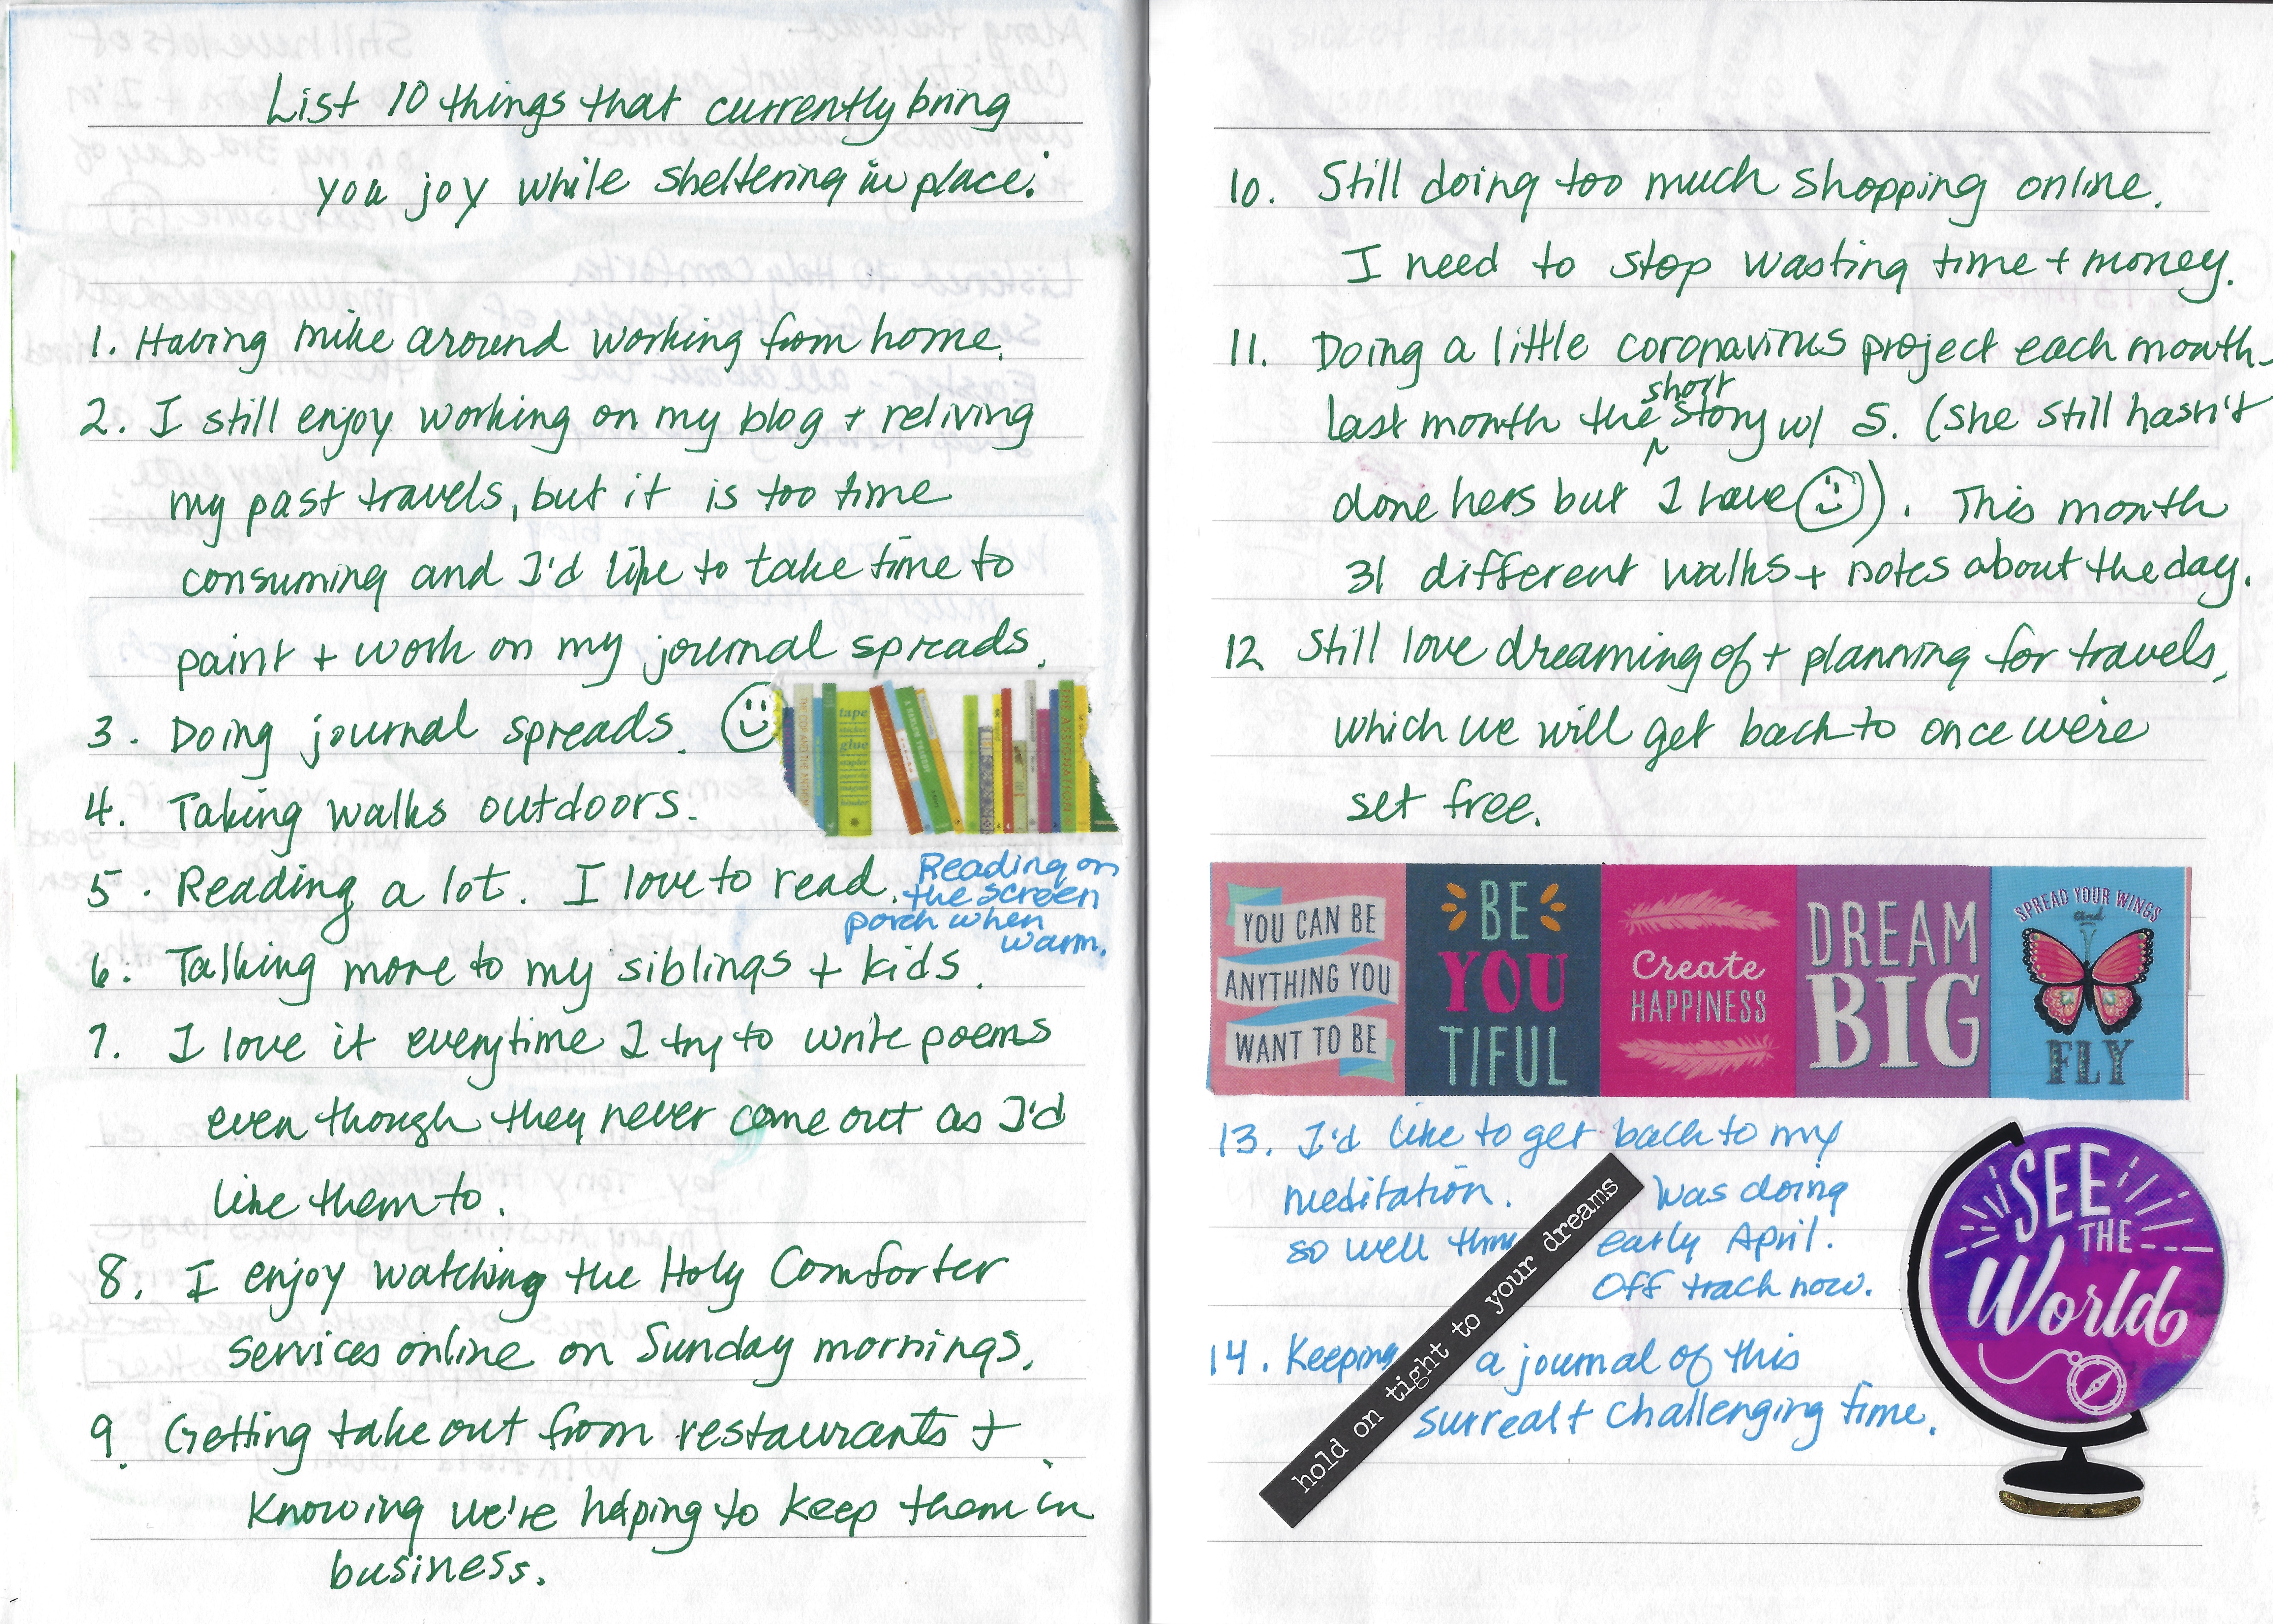 List 10 things that currently bring
you joy while sheltering in place:
1. Having mike around working from home.
2. I still enjoy working on my blog + reliving
my past travels, but it is too time
consuming and I'd like to take time to
paint + work on my journal spreads.
3. Doing journal spreads.
tape
glue
stapler
4. Taking walks outdoors.
5. Reading a lot. I love to read.
Reading on
the screen
porch when
warm.
6. Talking more to my siblings + kids.
7. I love it everytime I try to write poems
even though they never come out as I'd
like them to.
8. I enjoy watching the Holy Comforter
services online on Sunday mornings.
9. Getting take out from restaurants +
knowing we're helping to keep them in
business.
10. Still doing too much shopping online.
I need to stop wasting time + money.
11. Doing a little coronavirus project each month -
last month the short story w/ S. (she still hasn't
done hers but I have). This month
31 different walks + notes about the day.
12 Still love dreaming of + planning for travels,
which we will get back to once we're
set free.
YOU CAN BE
ANYTHING YOU
WANT TO BE
BE
YOU
TIFUL
Create
HAPPINESS
DREAM
BIG
SPREAD YOUR WINGS
and
FLY
13. I'd like to get back to my
meditation. Was doing
so well early April.
Off track now.
14. Keeping a journal of this
surreal + challenging time.
hold on tight to your dreams
SEE
THE
World